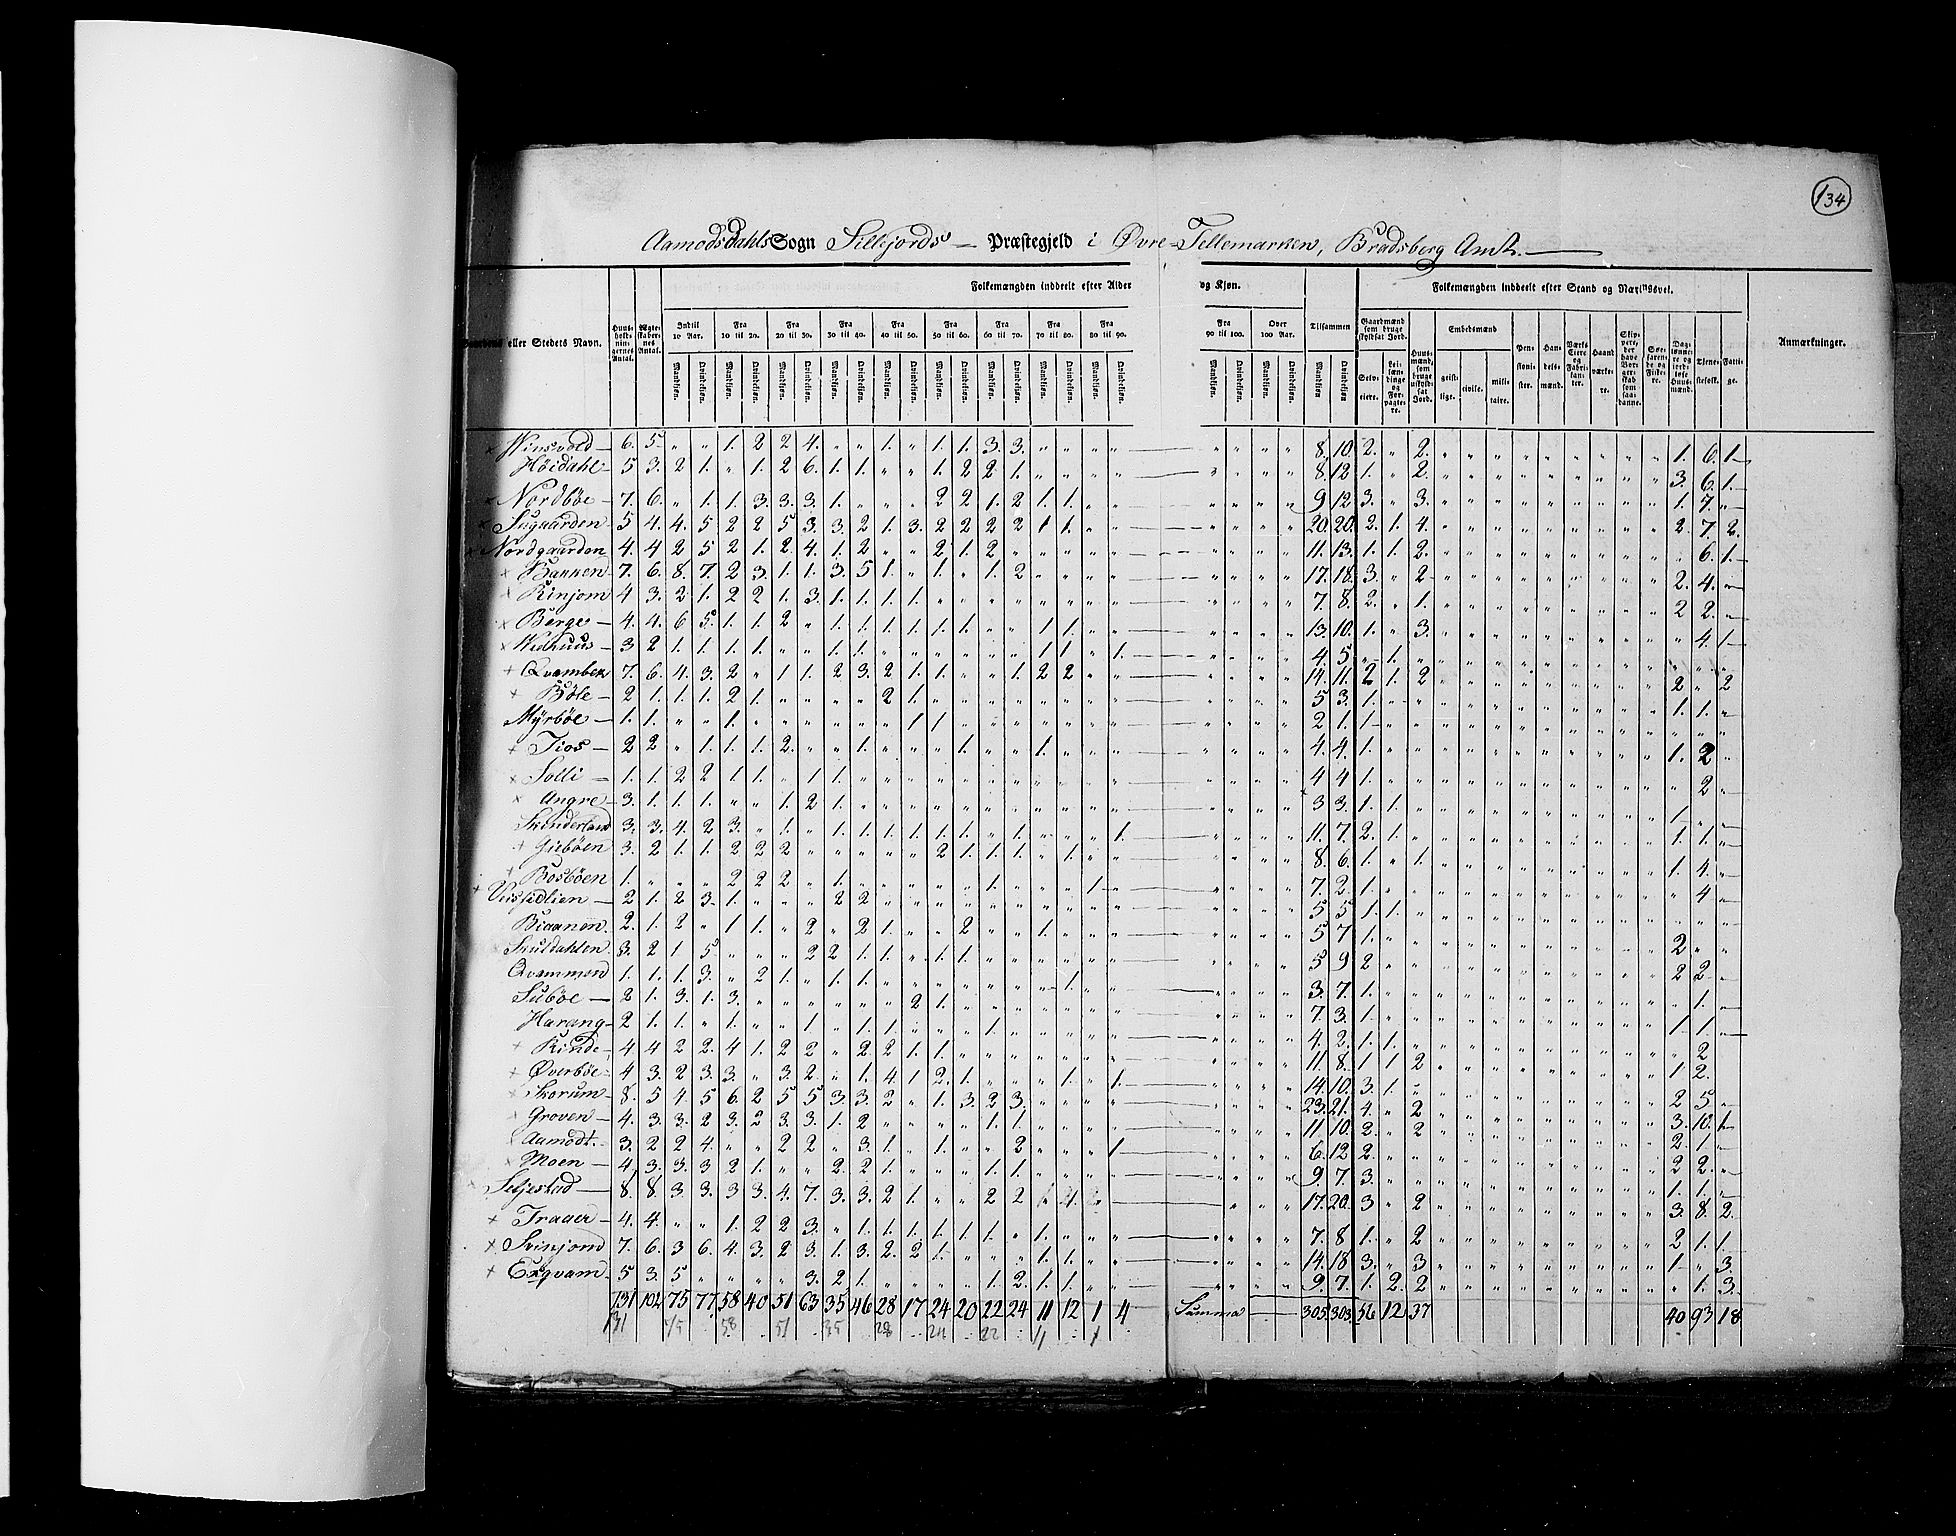 134
Aamodsdahls Sogn Sillejords — Præstegjeld i Øvre-Tellemarken, Bradsberg Amt. —
Folkemængden inddeelt efter Alder og Kjøn.
Folkemængden inddeelt efter Stand og Næringsvei.
eller Stedets Navn.
Huus-holdningernes Antal.
Ægteskabernes Antal.
Indtil 10 Aar.
Fra 10 til 20.
Fra 20 til 30.
Fra 30 til 40.
Fra 40 til 50.
Fra 50 til 60.
Fra 60 til 70.
Fra 70 til 80.
Fra 80 til 90.
Fra 90 til 100.
Over 100 Aar.
Tilsammen
Mandkjøn. Qvindekjøn.
Gaardmænd som bruge skyldsat Jord.
Selveiere.
Leilændinge og Forpagtere.
Huusmænd, som bruge uskyldsat Jord.
Embedsmænd
geistlige.
civile.
militaire.
Pensionister.
Handelsmænd.
Værks Eiere og Fabrikanter.
Haandværkere.
Skippere, der have Borgerskab som saadanne.
Søefarende og Fiskere.
Daglønnere og jordløse Huusmænd.
Tjenestefolk.
Fattige.
Anmærkninger.
Winsvold — 6. 5. „ „ 1. 2 2 4. „ „ 1. „ 1. 1. 3. 3. „ „ „ „ — 8. 10. 2. „ 2. 1. 6. 1
Høidahl 5 3. 2 1. „ 1. 2 6. 1. 1. „ „ 1. 2 2. 1. „ „ „ „ — 8. 12 1. „ 2. 3. 6. 1.
Nordbøe 7. 6. „ 1. 1. 3. 3. 3. 1. „ „ „ 2 2 1. 2 1. 1. „ „ — 9 12 3. „ 3. 1. 7. „
5 4. 4. 5 2 2 5 3. 3. 2 1. 3. 2 2 2 2 1 1. „ „ — 20. 20. 2. 1. 4. 2. 7. 2.
Nordgaarden 4. 4 2 5 2 1. 2. 4. 1. 2 „ „ 2 1. 2 „ „ „ „ „ — 11. 13. 1. 1. 2. „ 6. 1
Bakken 7. 6. 8. 7. 2 3. 1. 1. 3. 5 1. „ 1. „ 1. 2 „ „ „ „ — 17. 18. 3. „ 2 2. 4. „
Kinjom 4 3. 2 1. 2 2 1. 3. 1. 1. 1. 1. „ „ „ „ „ „ „ „ — 7. 8. 2. „ 1. 2 2. „
Berge — 4. 4. 6 5. 1. 1. 2 „ 1. 1. 1. 1. 1. 1. „ „ 1. 1. „ „ — 13. 10. 1. „ 3. „ 4. 1
3 2 1. 1. 1. 1. „ „ 1. 1. „ „ „ „ „ „ 1. 1. „ 1. — 4. 5. „ 1. „
7. 6. 4. 3. 2 „ 1 1. 2 3. 2 1. 1. „ „ 1. 2 2. „ „ — 14. 11. 2 1. 2 2 „ 2
Bøle — 2 1. 1. 1. 2 1. „ „ „ „ 2 1. „ „ „ „ „ „ „ „ — 5 3. 1. „ „ 1. 1. „
Myrbøe — 1. 1. „ „ 1. „ „ „ „ „ „ 1 1 „ „ „ „ „ „ „ — 2 1. 1
Tios — 2 2 „ 1. 1. 1. 2. „ „ 1. „ „ „ 1. „ „ 1. „ „ „ — 4. 4. 1. 1. 2 „
Solli — 1. 1. 2 2 1 1. „ 1 1. „ „ „ „ „ „ „ „ „ „ „ — 4 4 1. „ 2 „
Angre 3. 1. 1. 1. „ „ 1. 2 1. „ „ „ „ „ „ „ „ „ „ „ — 3 3. 1. 1. „ 1 „ „
Skinderland 3. 3. 4. 2 3. „ 1. „ 1. 1. 1. 1. 1. 1. „ 1. „ „ „ 1. — 11. 7. 2. 1. „ 1. 1. „
3. 2 1. 1. 2 2 2 „ „ „ „ „ 2 1. 1. 1. „ 1. „ „ — 8 6. 1. „ 1. 1. 4. „
Bosbøen 1. „ „ „ 2 2 2 „ 1. „ „ „ „ „ 1. „ „ „ 1 „ — 7. 2. 1. „ „ „ 4 „
2 1. 2 3. 1. „ „ „ 2 2 „ „ „ „ „ „ „ „ „ „ — 5 5 1. 1. „
2. 1. 2 „ 1 1. „ 2 „ 2 1. „ „ 2 „ „ 1. „ „ „ — 5 7 1. „ „ 2 „ „
Skuldahlen 3. 2 1 5 „ „ „ 2 2 1. 1. „ 1. 1. „ „ „ „ „ „ — 5 9 2 „ „ 2 2 „
1. 1. 1. 3. „ 2 1. „ 1. 1. „ „ „ „ „ „ „ 1. „ „ — 3. 7. 1. „ „ „ 1. „
2 1. 3. 1. 3. „ „ „ „ „ „ 2 1. „ „ „ „ „ „ „ — 7. 3. 1. „ „ 1 1. „
Harang 2 1. 1. „ 1. „ „ 1 „ 1. 1. „ „ „ 1. „ „ „ „ „ — 4. 2. 1. 1. „ „ 2
Kinde 4. 4 2 2. 4 1. 2 2 „ 2 2 1. 1. „ „ „ „ „ „ „ — 11. 8. 1 1 2 1 2.
Øverbøe 4 3. 2 3. 3. „ 3. 2. „ 1. 4. 1 2. 1. „ „ „ 1. „ 1. — 14. 10. 3. 1. „ 2 5 „
Skorum 8. 5 4. 5 6. 2 5 5 3. 3. 2 „ 1. 3. 2 3. „ „ „ „ — 23. 21. 4. „ 2 3. 10. 1
Groven 4. 3. 3. 2 3. 2 3. 3. 1. 2 „ „ „ „ 1. 1. „ „ „ „ — 11 10. 2. „ 2 2. 1. „
Aamodt 3. 2 2 4 „ „ 2 2 „ 3. 1. „ 1. „ „ 2 „ „ „ 1 — 6. 12 2. „ „ 2 2. „
Moen — 4. 3. 3. 3 2 1. „ „ 2 2 1. „ „ „ 1. 1. „ „ „ „ — 9. 7. 3. „ „ 1. 1. „
Seljestad — 8. 8 3 3. 3 3. 4. 7. 3. 3. 2 1. „ „ 2 2 — 17. 20. 3 „ 2 3. 8. 2.
4. 4. „ „ 1. 2 2 3. „ 1. 1. 1. 1. 1. 1. „ 1. „ „ „ — 7. 8 1. „ 2 2 1. 1.
Svinjom 7. 6. 3 6. 4. 3. 2 3. 1. 3. 2. 2 1. „ „ „ 1. 1. „ „ — 14. 18 3. „ 3 1 „ 3.
5 3. 5 „ „ „ „ 3. 2 1. „ „ „ „ 1. 2. 1. 1. „ „ — 9. 7. 1. 2. 2 „ 1. 3.
131 102 75 77 58 40 51 63 35 46 28 17 24 20 22 24 11 12 1 4 Summa — 305. 303. 56 12 37 40 93 18
131 75 58 51 35 28 24 22 11 1